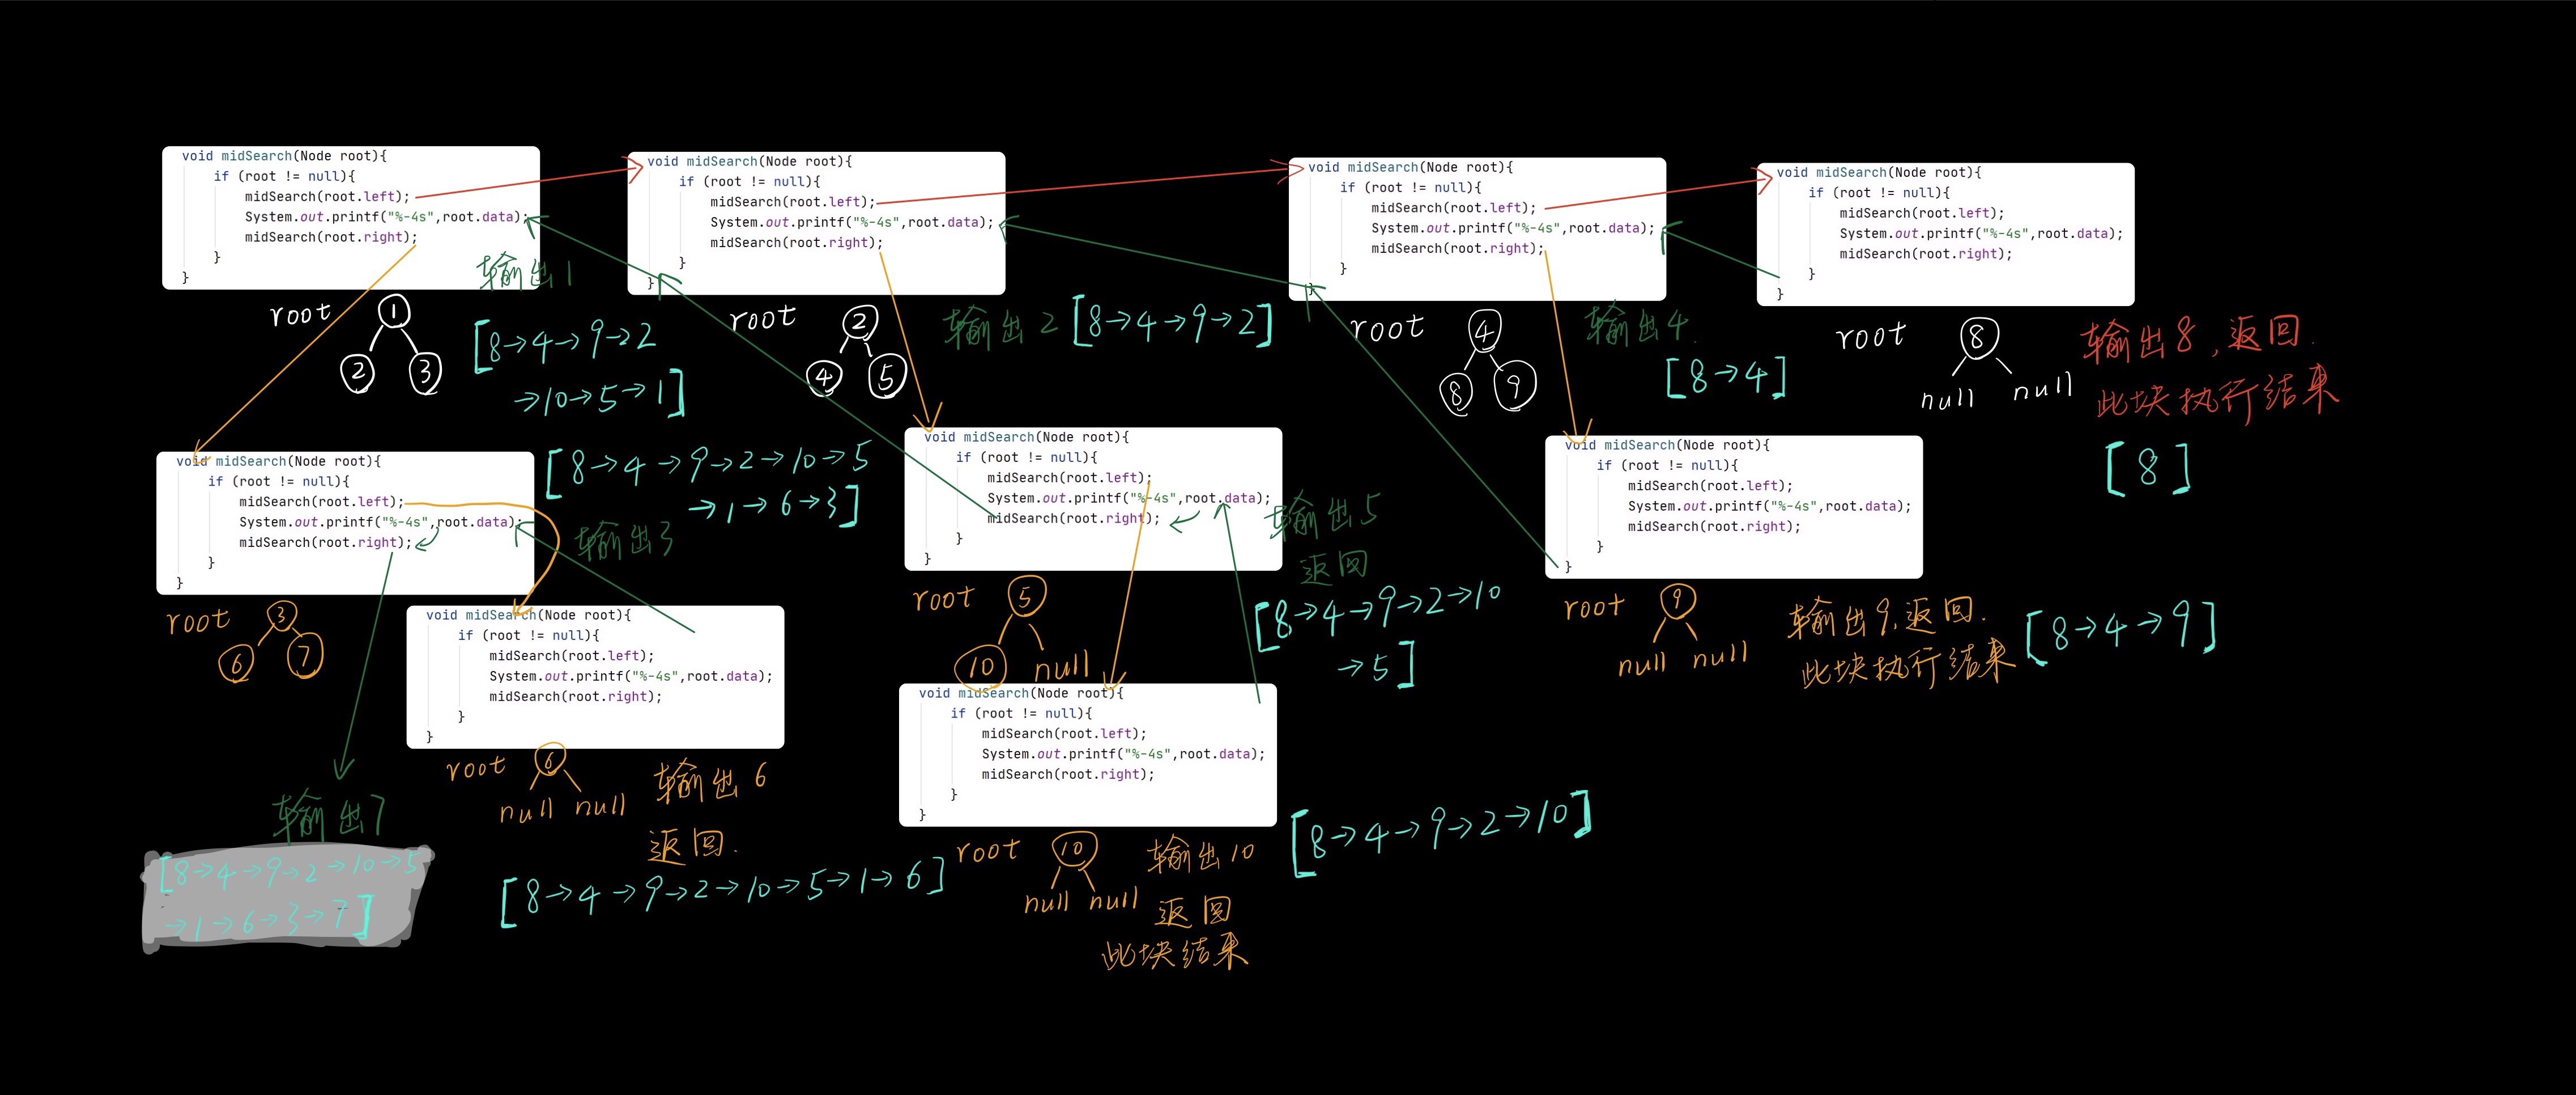 void midSearch(Node root){
if (root != null){
midSearch(root.left);
System.out.printf("%-4s",root.data);
midSearch(root.right);
}
}
输出1
root
1
2
3
[8→4→9→2
→10→5→1]
void midSearch(Node root){
if (root != null){
midSearch(root.left);
System.out.printf("%-4s",root.data);
midSearch(root.right);
}
}
root
2
4
5
输出2 [8→4→9→2]
void midSearch(Node root){
if (root != null){
midSearch(root.left);
System.out.printf("%-4s",root.data);
midSearch(root.right);
}
}
root
4
8
9
输出4.
[8→4]
void midSearch(Node root){
if (root != null){
midSearch(root.left);
System.out.printf("%-4s",root.data);
midSearch(root.right);
}
}
root
8
null null
输出8,返回.
此块执行结果
[8]
void midSearch(Node root){
if (root != null){
midSearch(root.left);
System.out.printf("%-4s",root.data);
midSearch(root.right);
}
}
[8→4→9→2→10→5
→1→6→3]
输出3
root
3
6
7
void midSearch(Node root){
if (root != null){
midSearch(root.left);
System.out.printf("%-4s",root.data);
midSearch(root.right);
}
}
输出5
返回
root
5
10
null
[8→4→9→2→10
→5]
void midSearch(Node root){
if (root != null){
midSearch(root.left);
System.out.printf("%-4s",root.data);
midSearch(root.right);
}
}
root
9
null null
输出9,返回.
此块执行结果
[8→4→9]
void midSearch(Node root){
if (root != null){
midSearch(root.left);
System.out.printf("%-4s",root.data);
midSearch(root.right);
}
}
root
6
null null
输出6
返回.
[8→4→9→2→10→5→1→6]
void midSearch(Node root){
if (root != null){
midSearch(root.left);
System.out.printf("%-4s",root.data);
midSearch(root.right);
}
}
root
10
null null
输出10
返回
此块结果
[8→4→9→2→10]
输出7
[8→4→9→2→10→5
→1→6→3→7]